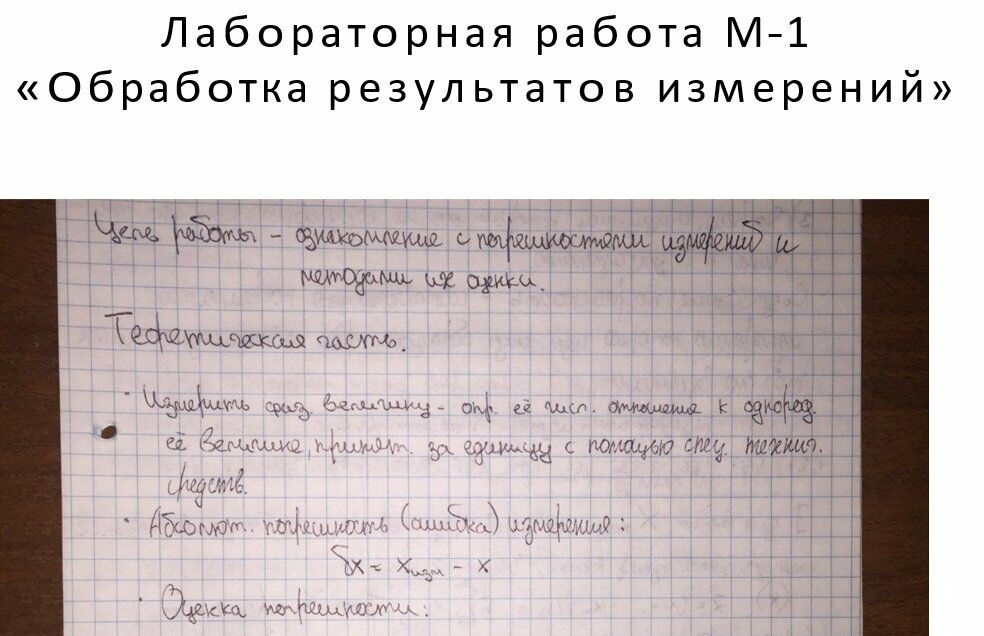 Лабораторная работа М-1
«Обработка результатов измерений»
Цель работы - ознакомление с погрешностями измерений и
методами их оценки.
Теоретическая часть.
· Измерить физ. величину - опр. её числ. отношение к однород.
её величине, принят. за единицу с помощью спец. технич.
средств.
· Абсолют. погрешность (ошибка) измерения:
δx = xизм - x
· Оценка погрешности: